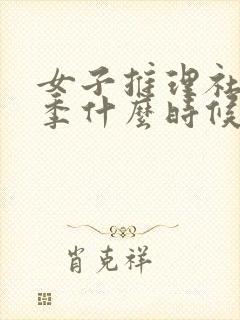 女子推理社
季什麼時候
肖克祥